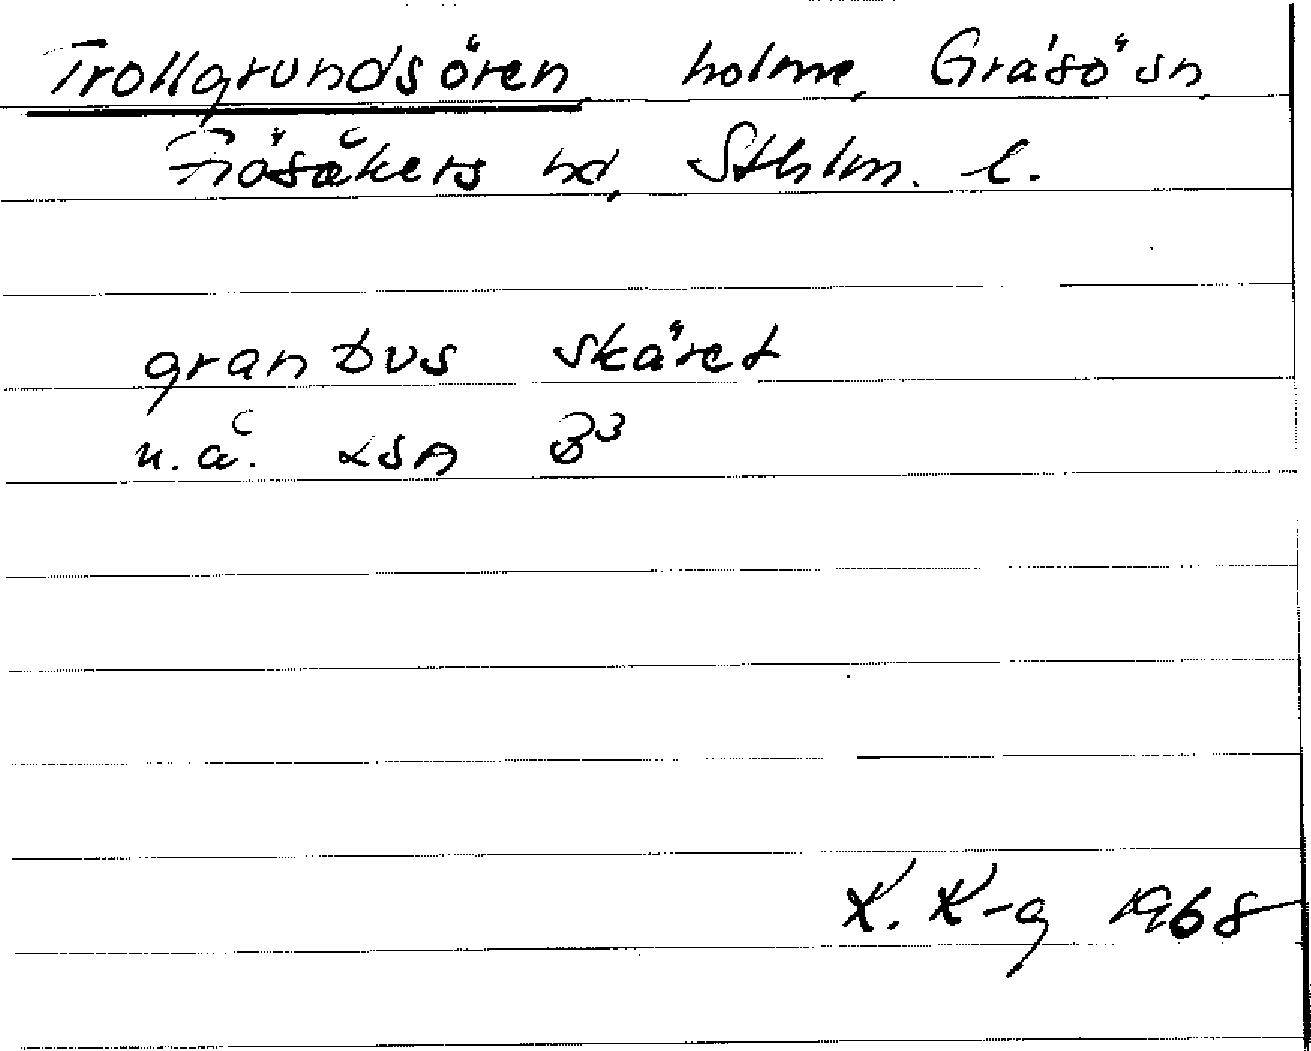 Trollgrundsören holme, Gräsö sn,
Frösåkers hd, Sthlm. l.
gran bus skäret
n. å. LSA B3
K. K-g 1968